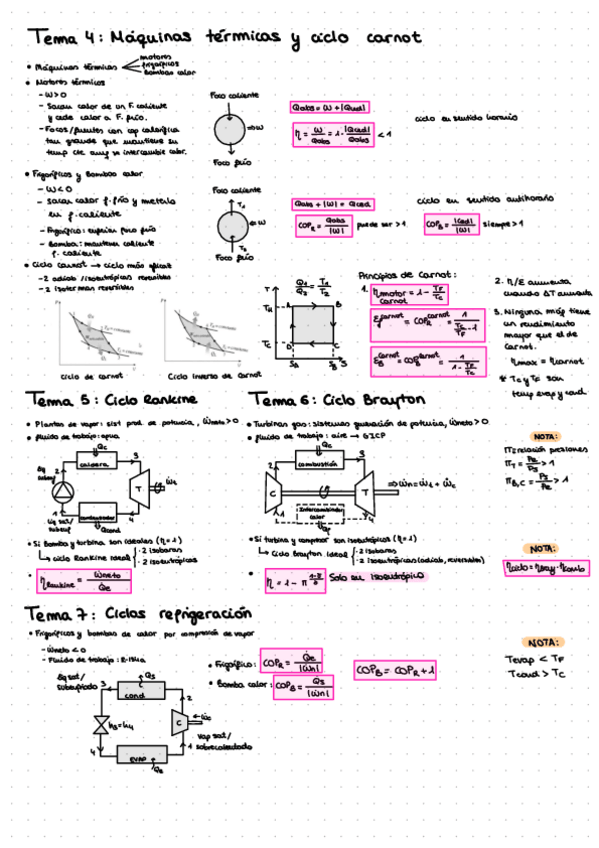 Tema 4: Máquinas térmicas y ciclo carnot
• Máquinas térmicas
motores
frigoríficos
Bombas calor
• Motores térmicos
- W>0
- Sacan calor de un F. caliente
y cede calor a F. frío.
- Focos/fuentes con cap calorífica
tan grande que mantiene su
temp cte aunq se intercambie calor.
Foco caliente
⇒W
Foco frío
Qabs = W + |Qced|
η = W/Qabs = 1 - |Qced|/Qabs < 1
ciclo en sentido horario
• Frigoríficos y Bombas calor
- W<0
- sacan calor f. frío y meterlo
en f. caliente
- Frigorífico: enfrían foco frío
- Bomba: mantener caliente
f. caliente
Foco caliente
T1
⇐W
T2
Foco frío
Qabs + |W| = Qced
COPR = Qabs/|W| puede ser >1
COPB = |Qced|/|W| siempre >1
ciclo en sentido antihorario
• Ciclo carnot → ciclo más eficaz
- 2 adiab/isoentrópicas reversibles
- 2 isotermas reversibles
ciclo de carnot
Ciclo inverso de Carnot
Q1/Q2 = T1/T2
T
TH
TC
A B
D C
SA SB S
Principios de Carnot:
1. ηmotor carnot = 1 - TF/TC
= COPR carnot
= COPB carnot
2. η/E aumenta
cuando ΔT aumenta
3. Ninguna máq tiene
un rendimiento
mayor que el de
carnot.
ηmax = ηcarnot
* TC y TF son
temp evap y cond
Tema 5: Ciclo Rankine
• Plantas de vapor: sist prod. de potencia, Ẇneto>0
• fluido de trabajo: agua
QC
caldera
2 3
T
Ẇt
1 4
condensador
Qcond
• Si Bomba y turbina son ideales (η=1)
↳ ciclo Rankine ideal
· 2 isobaras
· 2 isoentrópicas
• ηRankine = Ẇneto/Q̇e
Tema 6: Ciclo Brayton
• Turbinas gas: sistemas generación de potencia, Ẇneto>0
• fluido de trabajo: aire → GICP
QC
combustión
2 3
C T
⇒Ẇn = Ẇt + Ẇc
1 4
Intercambiador
calor
• Si turbina y compresor son isoentrópicos (η=1)
↳ Ciclo Brayton ideal
· 2 isobaras
· 2 isoentrópicas (adiab, reversibles)
• Solo en isoentrópico
NOTA:
π = relación presiones
>1
>1
NOTA:
Tema 7: Ciclos refrigeración
• Frigoríficos y bombas de calor por compresión de vapor
- Ẇneto < 0
- Fluido de trabajo: R-134a
líq sat/
subenfriado
3
cond
2
h3=h4
C
Ẇc
4
EVAP
1
Vap sat/
sobrecalentado
• Frigorífico: COPR = Q̇e/|Ẇn|
COPB = COPR + 1
• Bomba calor: COPB = Q̇s/|Ẇn|
NOTA:
Tevap < TF
Tcond > TC